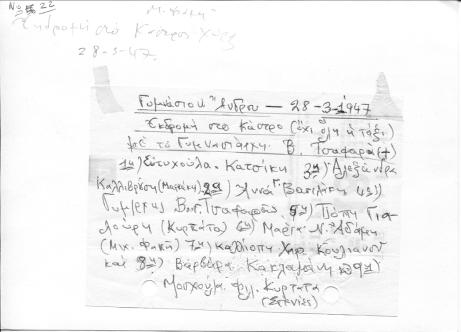 No 22
Μ. Φακή
Εκδρομή στο Κάστρο Χώρα
28-3-47.
Γυμνάσιον Άνδρου — 28-3-1947
Εκδρομή στο κάστρο (όχι όλη η τάξι)
με το Γυμνασιάρχη Β. Τσαφαρά (+)
1η) Ευτυχούλα Κατσίκη 3η) Αλεξάνδρα
Καλλιβρούση (Μαμάκη) 2α) Άννα Βασιλάκη 4ος)
Γυμ/ρχης Βασ. Τσαφαράς 5η) Πόπη Για-
λούρη (Κυρτάτα) 6η) Μαρία Ν. Αδάμη
(Μιχ. Φακή) 7η) Καλλιόπη Χαρ. Κουλιανού
και 8η) Βαρβάρα Κακλαμάνη 9η)
Μοσχούλα Φιλ. Κυρτάτα
(Στενιές)